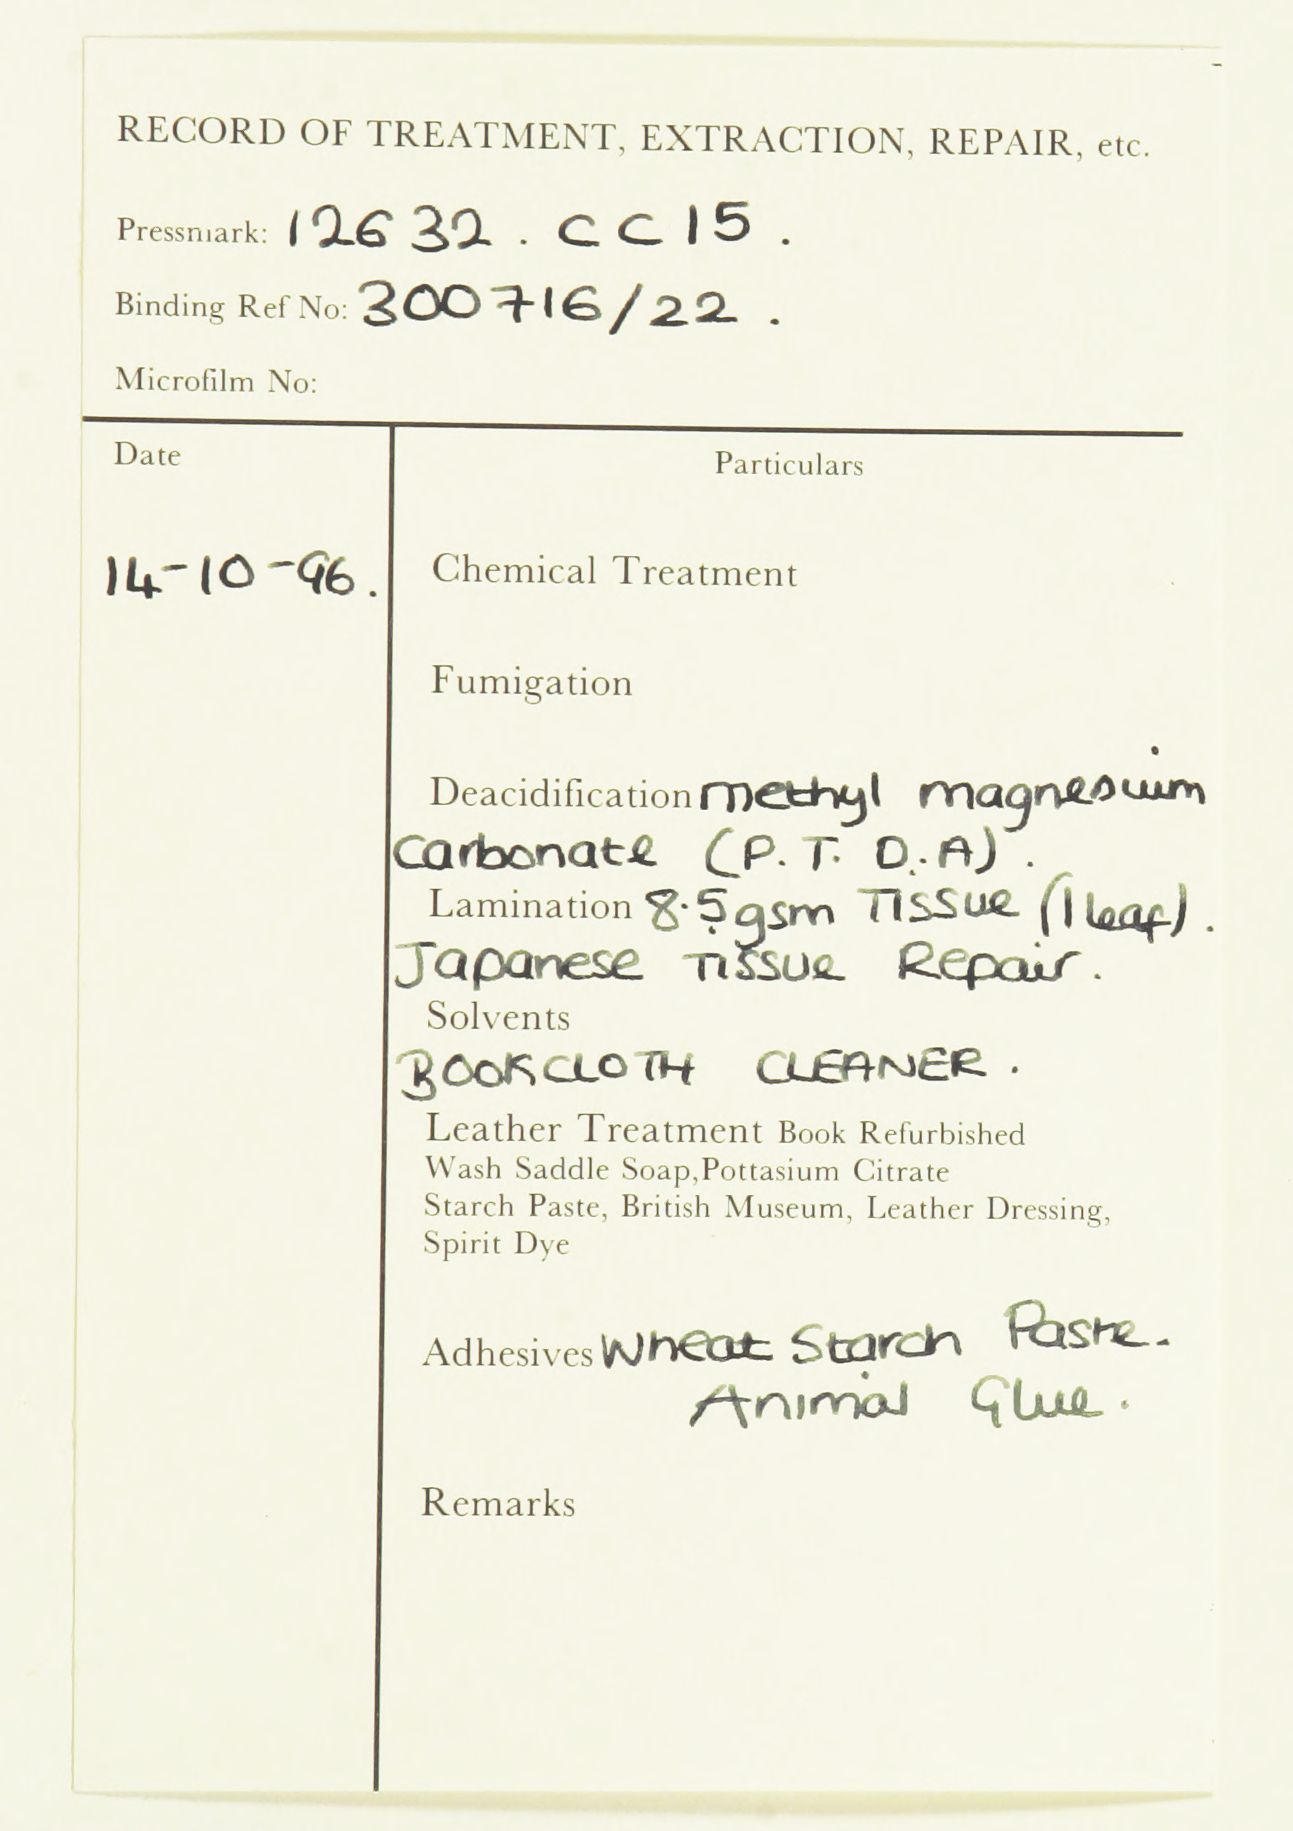 RECORD OF TREATMENT, EXTRACTION, REPAIR, etc.
Pressmark: 12632. CC15.
Binding Ref No: 300716/22.
Microfilm No:
Date
Particulars
14-10-96.
Chemical Treatment
Fumigation
Deacidification methyl magnesium
carbonate (P.T.D.A).
Lamination 8.5gsm Tissue (1 leaf).
Japanese Tissue Repair.
Solvents
BOOKCLOTH CLEANER.
Leather Treatment Book Refurbished
Wash Saddle Soap,Pottasium Citrate
Starch Paste, British Museum, Leather Dressing,
Spirit Dye
Adhesives Wheat Starch Paste.
Animal Glue.
Remarks